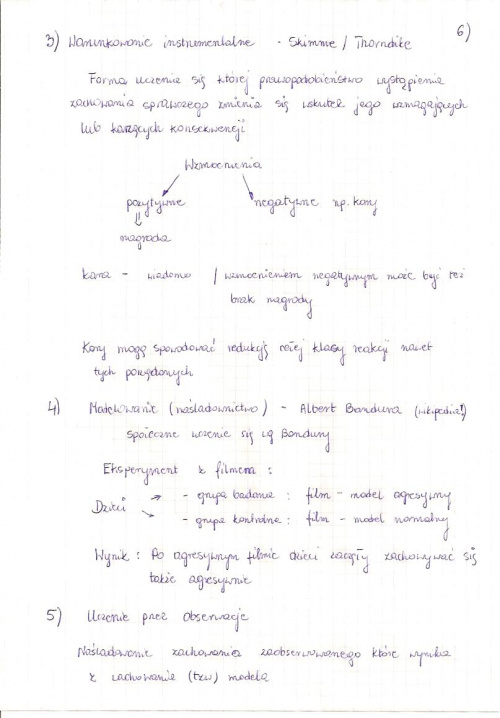 6)
3) Warunkowanie instrumentalne - Skinner / Thorndike
Forma uczenia się której prawdopodobieństwo wystąpienia
zachowania sprawczego zmienia się wskutek jego wzmagających
lub karzących konsekwencji
Wzmocnienia
pozytywne negatywne np. kary
nagroda
kara - wiadomo / wzmocnieniem negatywnym może być też
brak nagrody
Kary mogą spowodować redukcję całej klasy reakcji nawet
tych porządonych
4) Modelowanie (naśladownictwo) - Albert Bandura (wikipedia!)
społeczne uczenie się wg Bandury
Eksperyment z filmem :
Dzieci - grupa badana : film - model agresywny
- grupa kontrolna : film - model normalny
Wynik : Po agresywnym filmie dzieci zaczęły zachowywać się
także agresywnie
5) Uczenie przez obserwację
Naśladowanie zachowania zaobserwowanego które wynika
z zachowania (tzw) modela